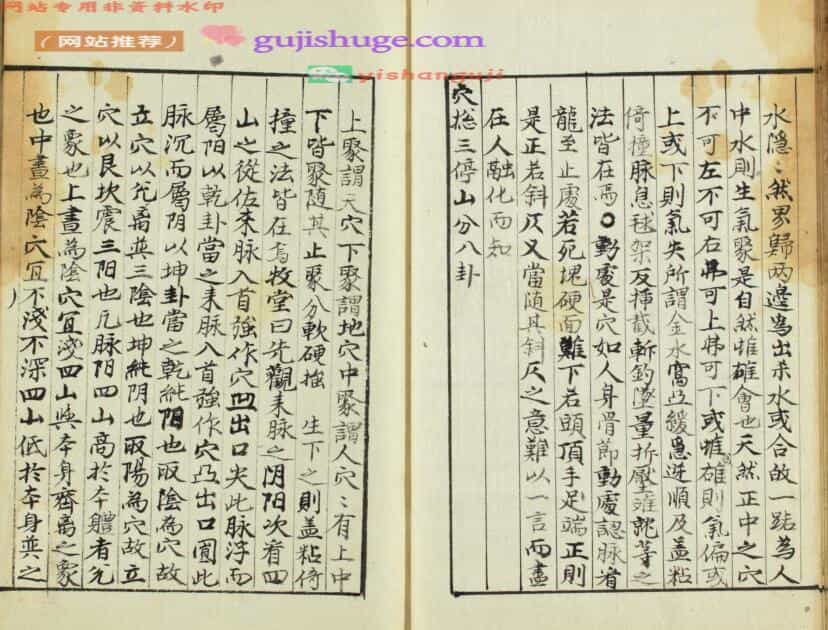 网站专用非资料水印
(网站推荐)
gujishuge.com
yishanguji
水隱〻然界歸两邊爲出杀水或合故一跕為人
中水則生氣聚是自然雌雄會也天然正中之穴
不可左不可右弗可上弗可下或雌雄則氣偏或
上或下則氣失所謂金水窩凸緩急逆順及盖粘
倚撞脉息毬架及揷截斬釣墜量折壓雍就等之
法皆在焉〇動處是穴如人身骨節動處認脉看
龍至止處若死塊硬面難下若頭頂手足端正則
是正若斜仄又當随其斜仄之意難以一言而盡
在人融化而知
穴捴三停山分八卦
上聚謂天穴下聚謂地穴中聚謂人穴〻有上中
下皆聚随其止聚分軟硬强 生下之則盖粘倚
撞之法皆在焉牧堂曰先觀来脉之阴阳次看四
山之從佐来脉入首強作穴凹出口尖此脉浮而
屬阳以乾卦當之来脉入首強作穴凸出口圎此
脉沉而屬阴以坤卦當之乾純阳也取陰為穴故
立穴以兊离巽三陰也坤純阴也取陽為穴故立
穴以艮坎震三阳也凡脉阳四山高於本軆者兊
之象也上畫為陰穴冝淺四山與本身齊离之象
也中畫為陰穴冝不淺不深四山低於本身巽之